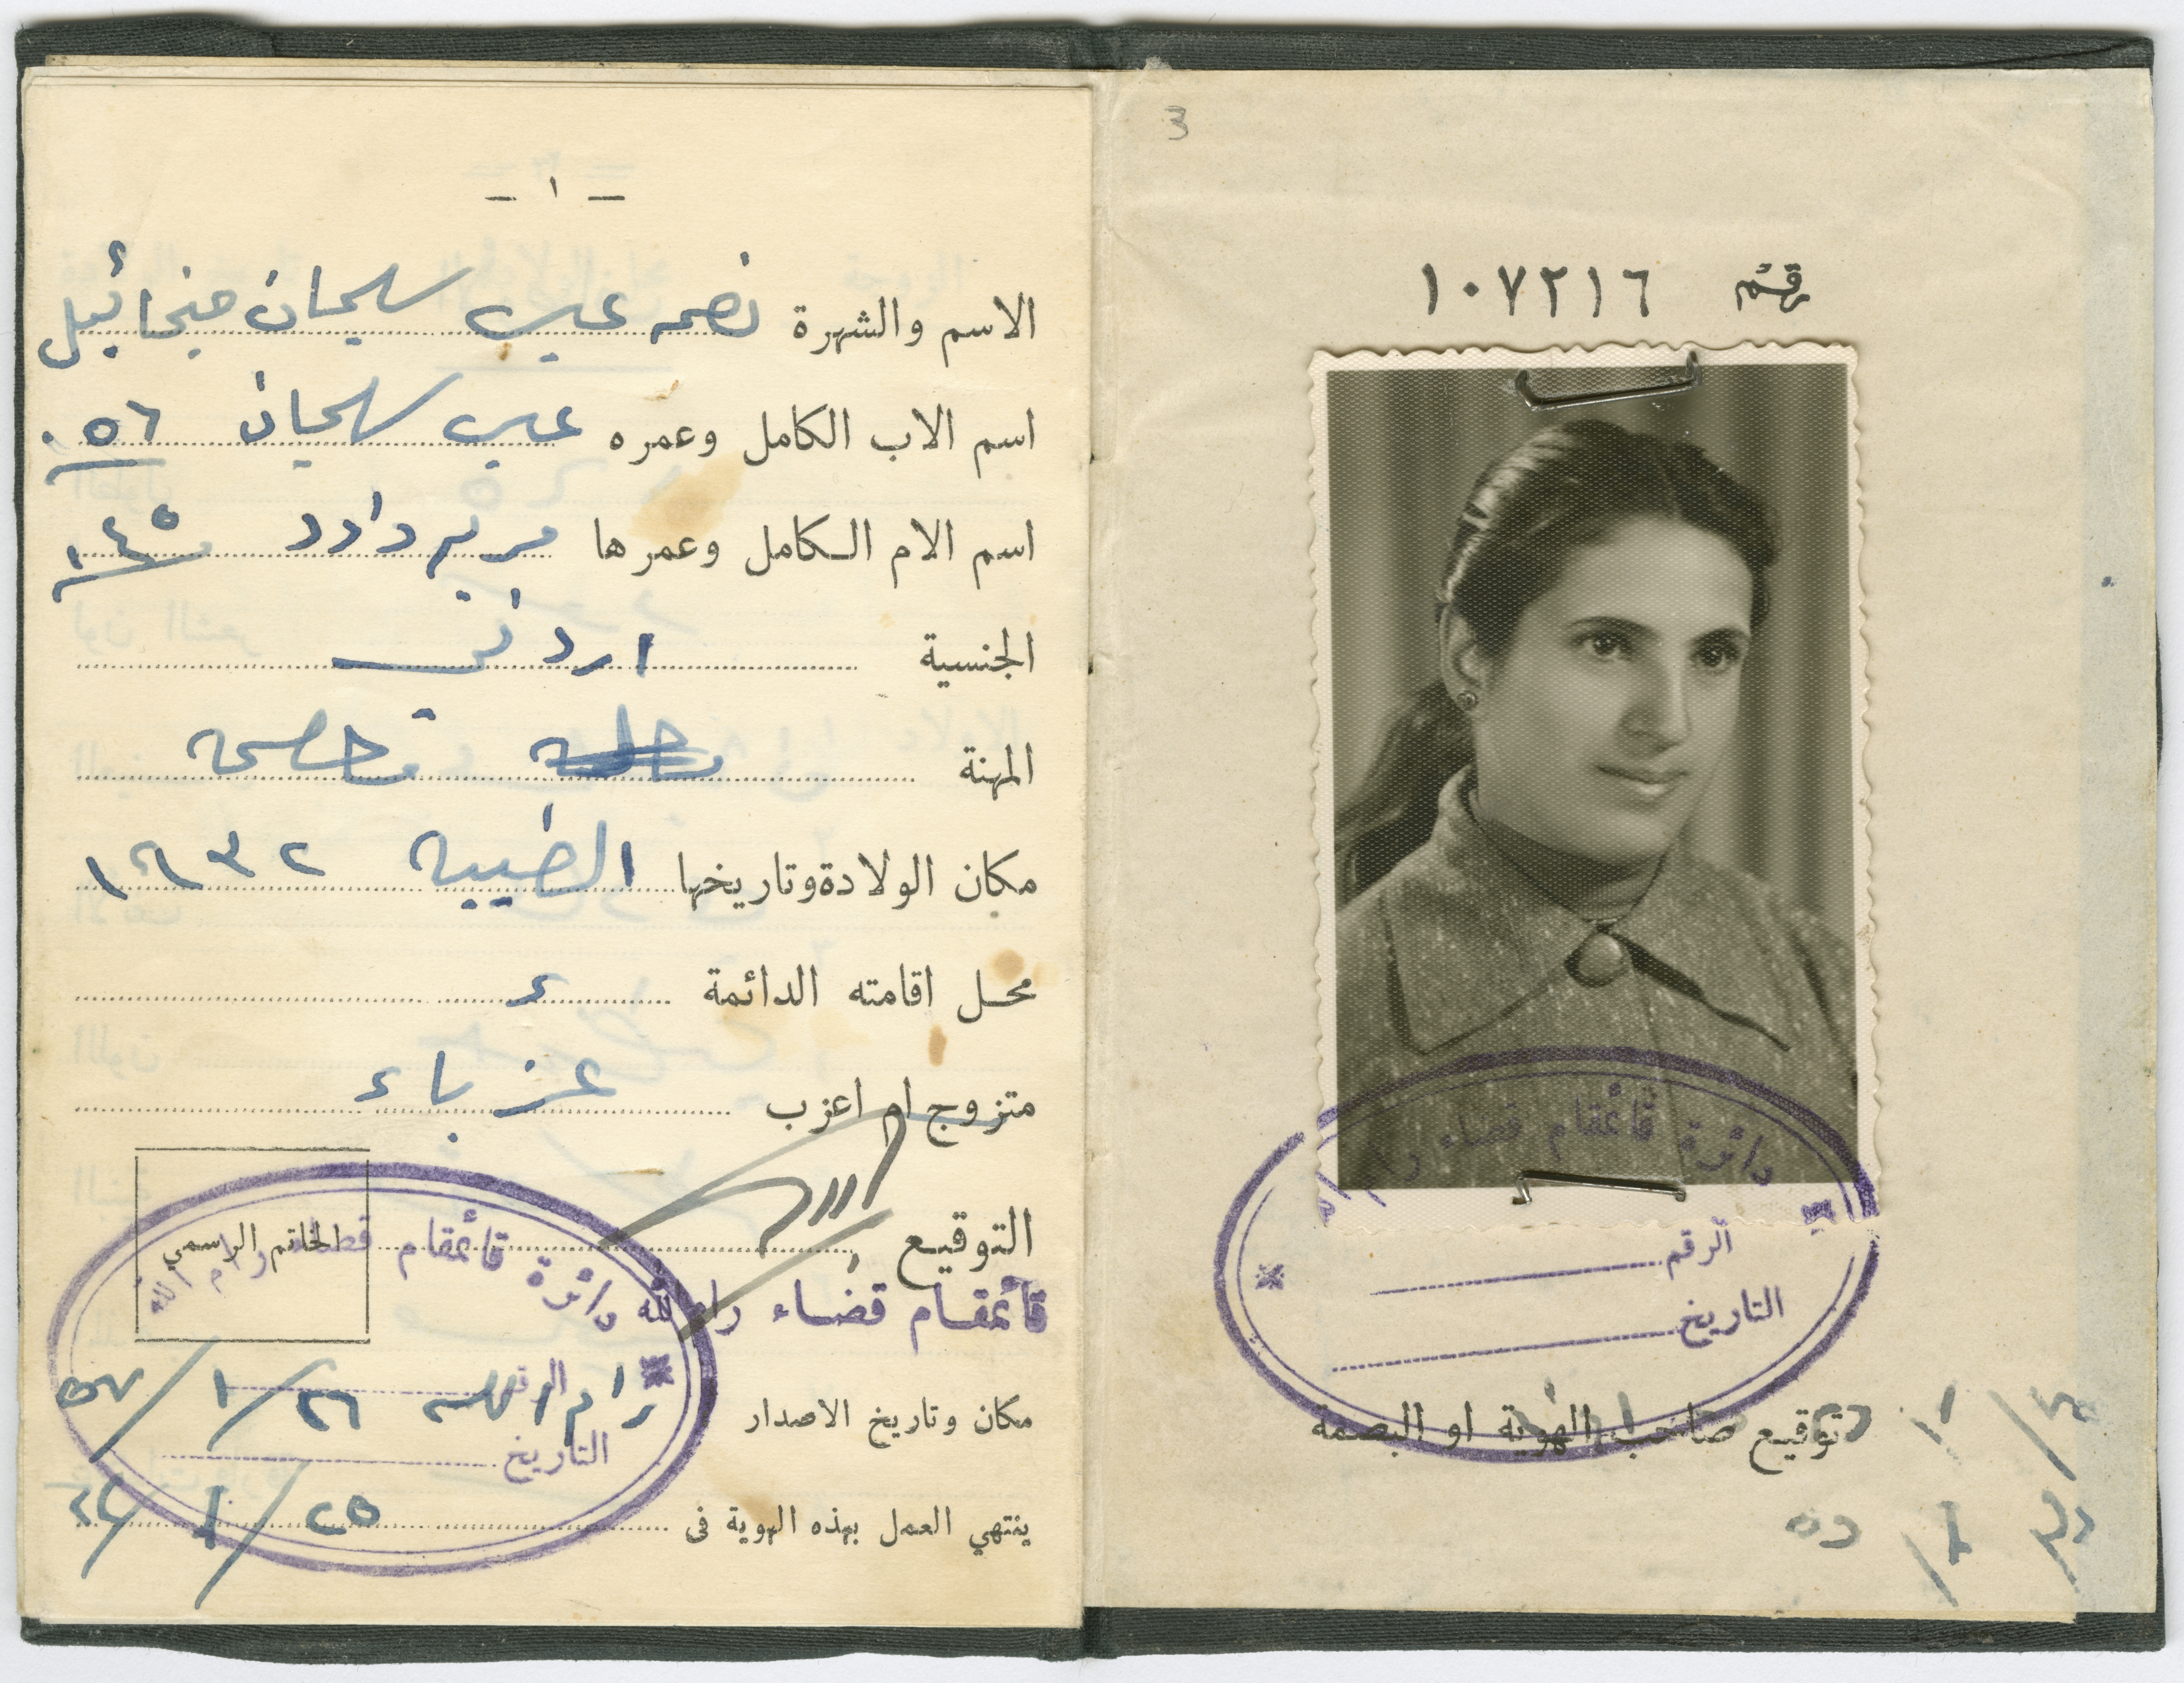 3
رقم ١٠٧٢١٦
دائرة قائمقام قضاء رام الله
الرقم
التاريخ
توقيع صاحب الهوية او البصمة
– ١ –
الاسم والشهرة سليمان
اسم الاب الكامل وعمره سليمان ٥٦
اسم الام الكامل وعمرها مريم داود ٤٥
الجنسية اردني
المهنة
مكان الولادة وتاريخها الطيبه ١٩٣٢
محل اقامته الدائمة
متزوج ام اعزب عزباء
التوقيع
قائمقام قضاء رام الله
الخاتم الرسمي
دائرة قائمقام قضاء رام الله
الرقم
التاريخ
مكان وتاريخ الاصدار رام الله ٢٦/١/٥٧
ينتهي العمل بهذه الهوية فى ٢٥/١/٦٢